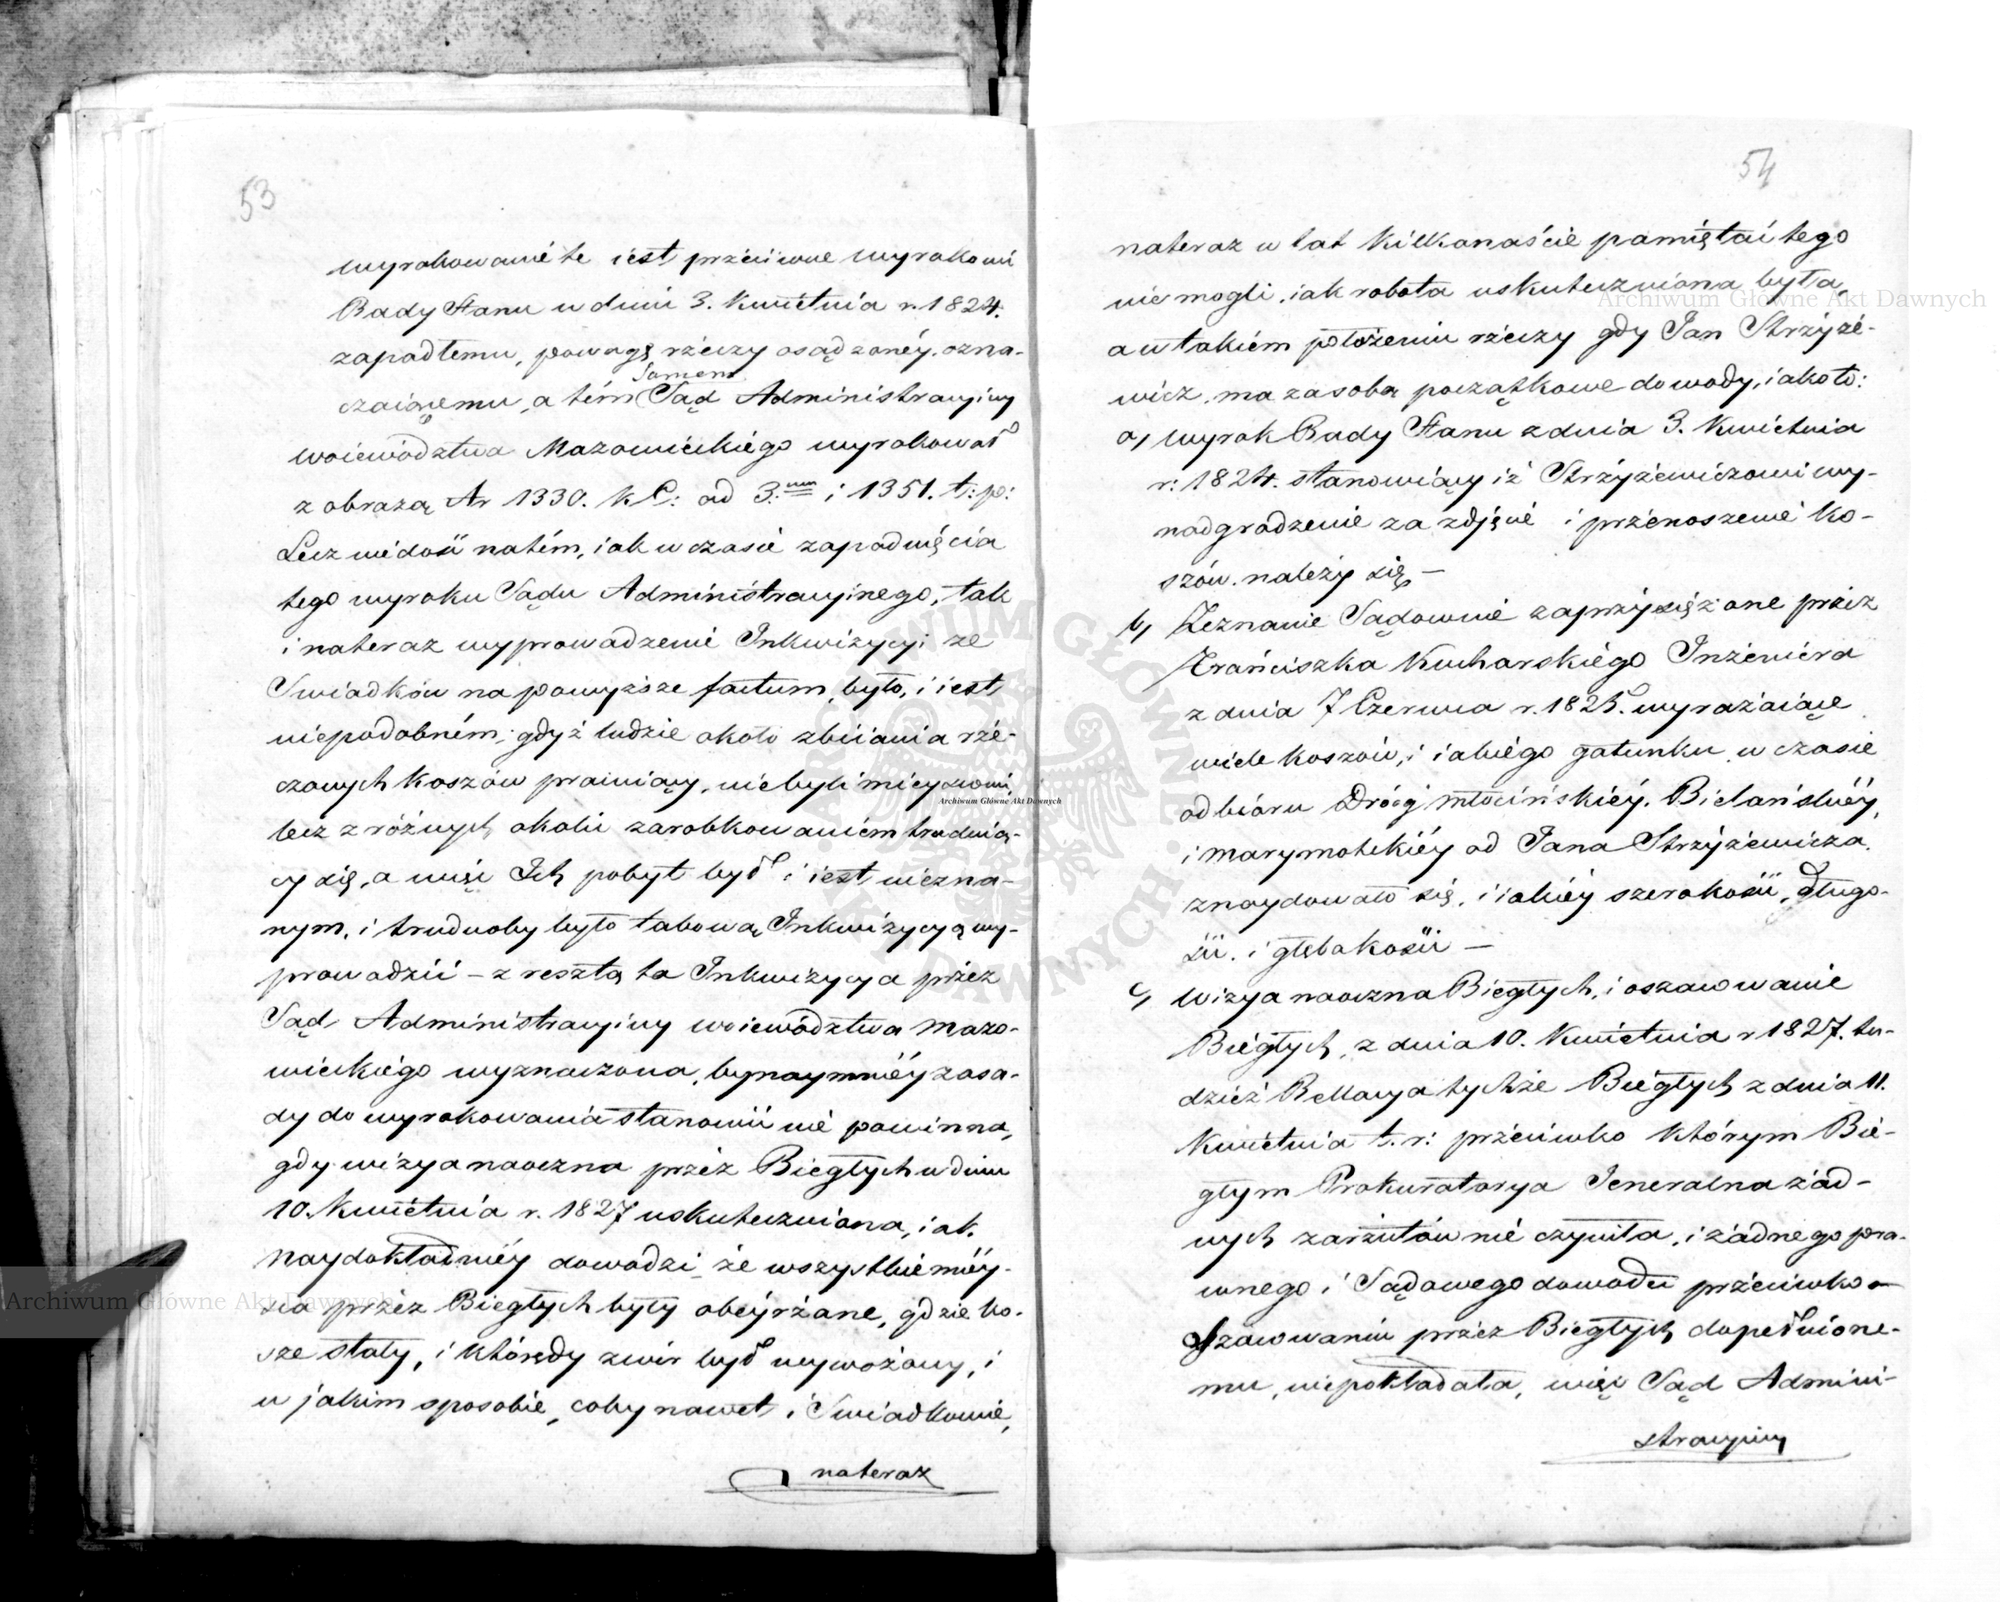 53
wyrokowanié te iest przéciwne wyrokowi
Rady Stanu w dniu 3. Kwiétnia r. 1824.
zapadłemu, powagę rzéczy osądzonéy. ozna-
czaiącemu, a tém Samem Sąd Administracyiny
woiewództwa Mazowieckiégo wyrokował
z obrazą Ar 1330. k. C: ad 3. um i 1351. t: p:
Lecz niédość natém, iak w czasié zapadnięcia
tego wyroku Sądu Administracyinego, tak
i nateraz wyprowadzenié Inkwizycyi ze
Swiadków na powyższe factum, było, i iest
niepodobném, gdyż ludzie około zbiiania rzé-
czonych koszów pracuiący, niebyli mieyscowi,
lecz z różnych okolic zarobkowaniém trudnią-
cy się, a więc Ich pobyt był i iest niezna-
nym, i trudnoby było takową Inkwizycyą wy-
prowadzić – z resztą ta Inkwizycya przez
Sąd Administracyiny woiewództwa mazo-
wieckiégo wyznaczona, bynaymniéy zasa-
dy do wyrokowania stanowić nié powinna,
gdy wizya naoczna przéz Biegłych w dniu
10. Kwiétnia r. 1827 uskuteczniona, iak.
naydokładniéy dowodzi, że wszystkié miéy-
sca przéz Biegłych były obéyrzane, gdzie ko-
sze stały, i którędy zwir był wywożony, i
w jakim sposobie, coby nawet i Swiadkowié,
nateraz
54
nateraz w lat kilkanaście pamiętać tego
nie mogli, iak robota uskuteczniona była,
a w takiém położeniu rzéczy gdy Jan Strzyżé-
wicz, ma za sobą początkowe dowody, iakoto:
a, wyrok Rady Stanu z dnia 3. Kwietnia
r: 1824. stanowiący iż Strzyżewiczowi wy-
nadgrodzenié za zdjęcié i przénoszenié ko-
szów. należy się –
b, Zeznanie Sądownié zaprzysiężone przéz
Franciszka Kucharskiégo Inżeniéra
z dnia 7 Czerwca r. 1825. wyrażaiące
wiele koszów, i iakiégo gatunku w czasie
odbióru Dróg młocińskiéy. Bielańskiéy,
i marymontskiéy od Jana Strzyżewicza.
znaydowało się, i iakiéy szerokości, długo-
ści. i głębokości –
c, wizya naoczna Biegłych, i oszacowanie
Biegłych, z dnia 10. Kwiétnia r 1827. tu-
dziéż Rellacya tychże Biegłych z dnia 11.
Kwiétnia t. r: przéciwko którym Bie-
głym Prokuratorya Jeneralna żad-
nych zarzutów nié czyniła, i żadnego pra-
wnego i Sądowego dowodu przéciwko o-
szacowaniu przéz Biegłych dopełnione-
mu, niepokładała, więc Sąd Admini-
stracyiny
Archiwum Główne Akt Dawnych
Archiwum Główne Akt Dawnych
Archiwum Główne Akt Dawnych
ARCHIWUM GŁÓWNE AKT DAWNYCH